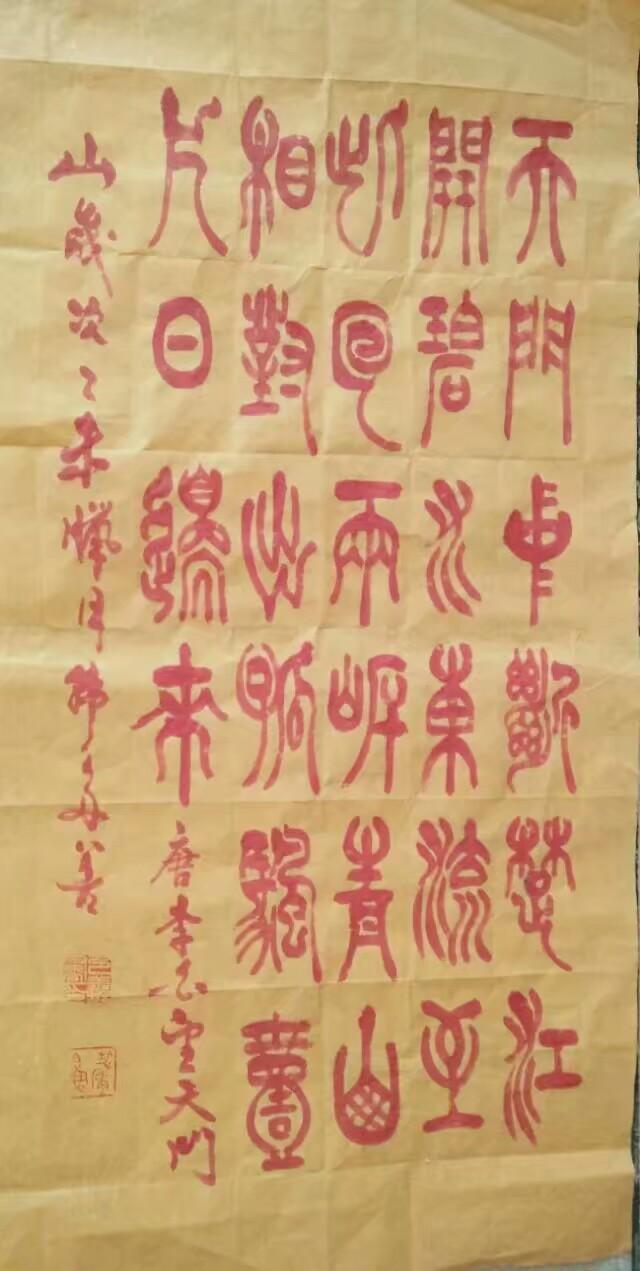 天門中斷楚江
開碧水東流至
此回兩岸青山
相對出孤颿壹
片日邊來唐李白望天門
山歲次乙未臘月